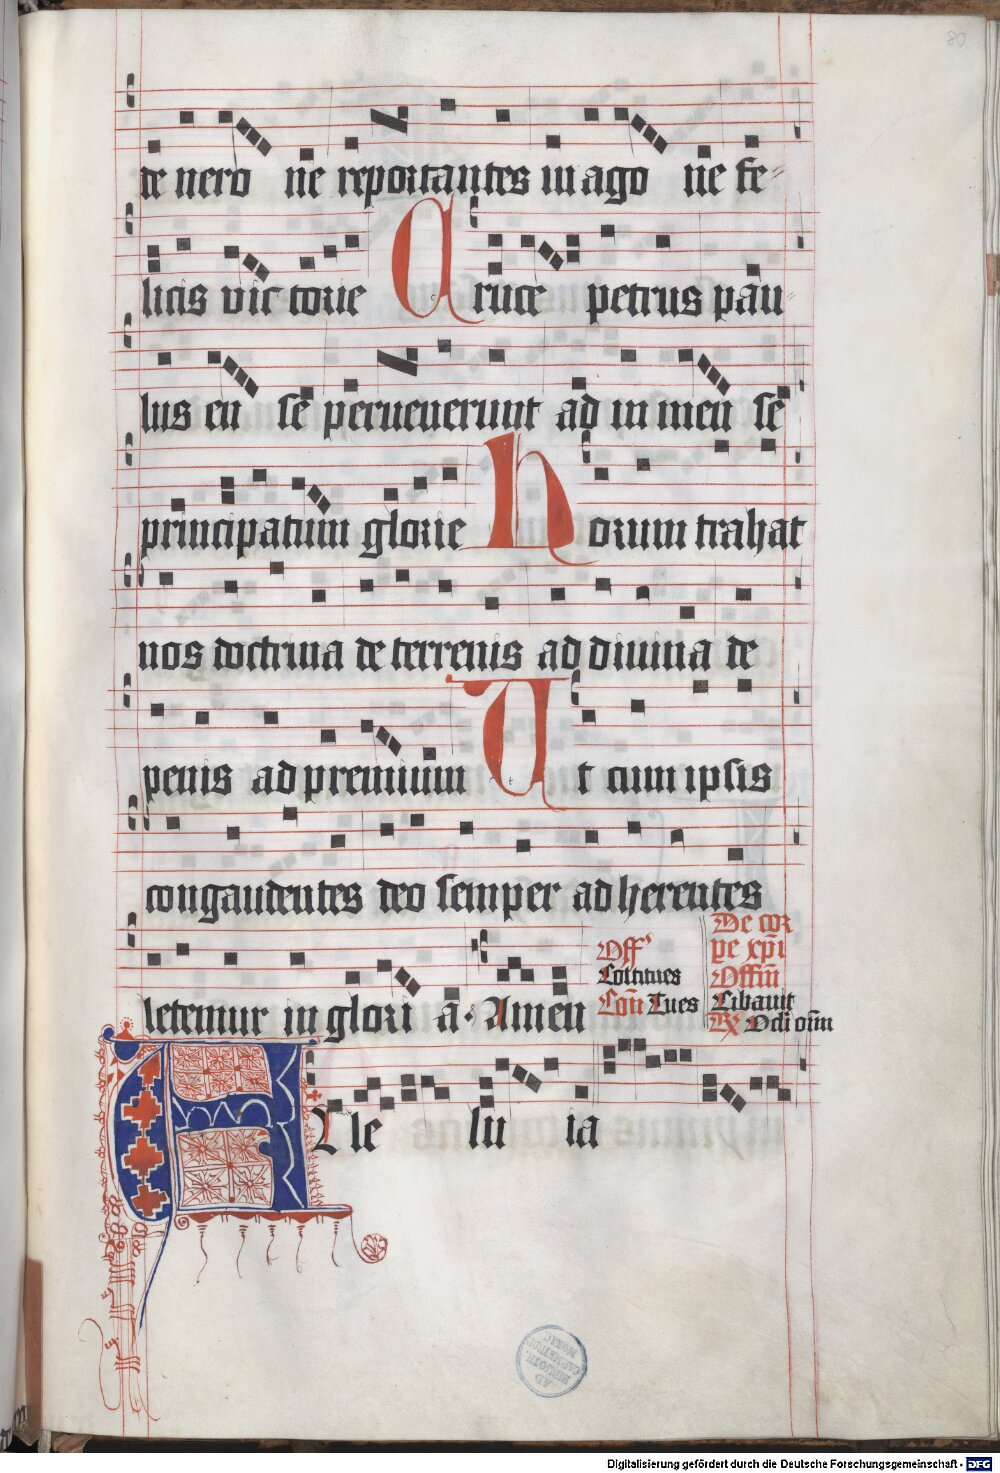 80
de nero ne reportantes in ago ne fe-
licis victorie Cruce petrus pau-
lus en se peruenerunt ad in men se
principatum glorie horum trahat
nos doctrina de terrenis ad diuina de
penis ad premium Ut cum ipsis
congaudentes deo semper adherentes
letemur in glori a. Amen
Off'
Constitues
Com̄ Tues
De cor
pe xp̄i
Offm̄
Cibauit
Odi oīm
Alle lu ia
AD
BIBLIOTH.
MONAC.
Digitalisierung gefördert durch die Deutsche Forschungsgemeinschaft - DFG